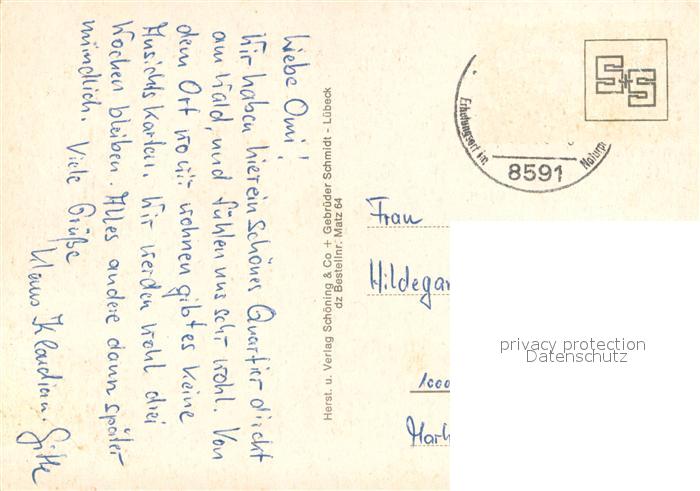 Liebe Omi!
Wir haben hier ein schönes Quartier dicht
am Wald, und fühlen uns sehr wohl. Von
dem Ort wo wir wohnen gibt es keine
Ansichtskarten. Wir werden wohl drei
Wochen bleiben. Alles andere dann später
mündlich. Viele Grüße
Klaus Klaudia u. Gitte
Herst. u. Verlag Schöning & Co + Gebrüder Schmidt - Lübeck
dz Bestellnr. Matz 64
S+S
Erholungsort im
Naturp
8591
Frau
Hildegar
1000
privacy protection
Datenschutz